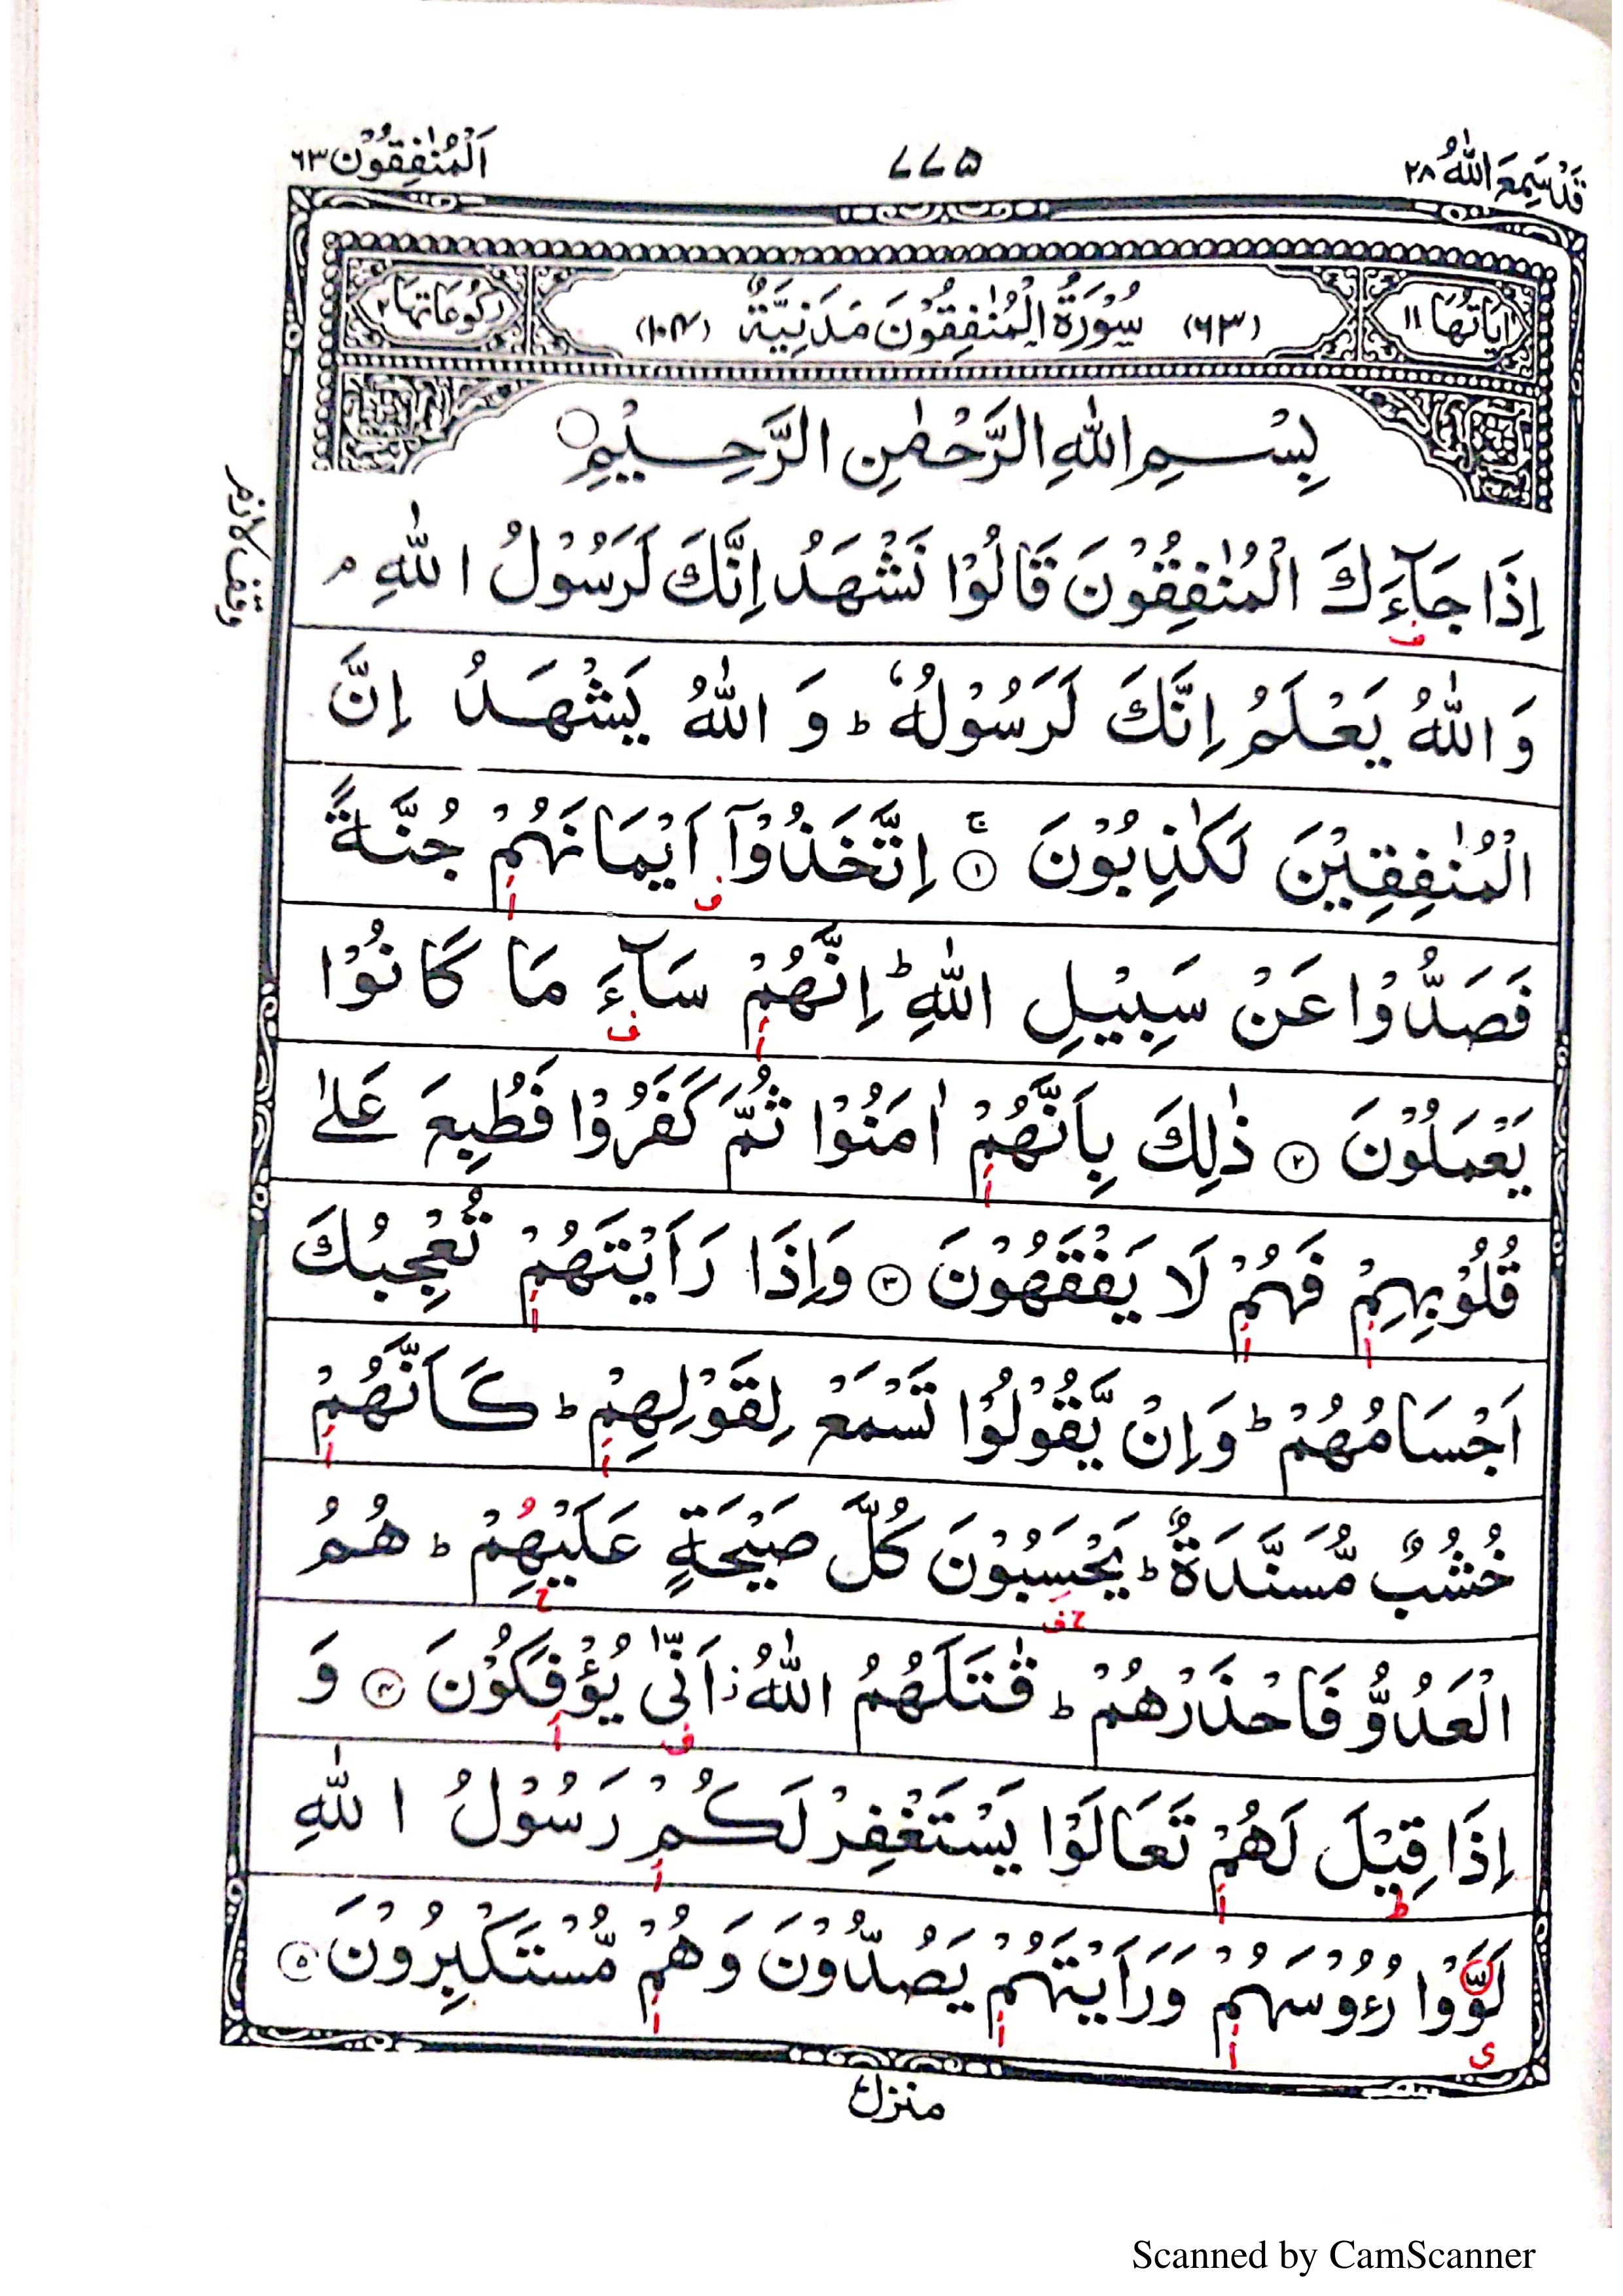 قَدْسَمِعَ اللّٰهُ ٢٨
٧٧٥
اَلْمُنٰفِقُوْن ٦٣
اٰيَاتُهَا ١١
(٦٣) سُوْرَةُ الْمُنٰفِقُوْنَ مَدَنِيَّةٌ (١٠٤)
رُكُوْعَاتُهَا ٢
بِسْمِ اللّٰهِ الرَّحْمٰنِ الرَّحِيْمِ
اِذَا جَآءَكَ الْمُنٰفِقُوْنَ قَالُوْا نَشْهَدُ اِنَّكَ لَرَسُوْلُ اللّٰهِ ۘ
ف
وقف لازم
وَ اللّٰهُ يَعْلَمُ اِنَّكَ لَرَسُوْلُهٗ ؕ وَ اللّٰهُ يَشْهَدُ اِنَّ
الْمُنٰفِقِيْنَ لَكٰذِبُوْنَ ۚ ① اِتَّخَذُوْۤا اَيْمَانَهُمْ جُنَّةً
ف أ
فَصَدُّوْا عَنْ سَبِيْلِ اللّٰهِ ؕ اِنَّهُمْ سَآءَ مَا كَانُوْا
أ ف
يَعْمَلُوْنَ ② ذٰلِكَ بِاَنَّهُمْ اٰمَنُوْا ثُمَّ كَفَرُوْا فَطُبِعَ عَلٰى
أ
قُلُوْبِهِمْ فَهُمْ لَا يَفْقَهُوْنَ ③ وَاِذَا رَاَيْتَهُمْ تُعْجِبُكَ
أ أ أ
اَجْسَامُهُمْ ؕ وَاِنْ يَّقُوْلُوْا تَسْمَعْ لِقَوْلِهِمْ ؕ كَاَنَّهُمْ
أ أ
خُشُبٌ مُّسَنَّدَةٌ ؕ يَحْسَبُوْنَ كُلَّ صَيْحَةٍ عَلَيْهِمْ ؕ هُمُ
ح ف ح
الْعَدُوُّ فَاحْذَرْهُمْ ؕ قٰتَلَهُمُ اللّٰهُ ز اَنّٰى يُؤْفَكُوْنَ ④ وَ
ف أ
اِذَا قِيْلَ لَهُمْ تَعَالَوْا يَسْتَغْفِرْ لَكُمْ رَسُوْلُ اللّٰهِ
ط أ أ
لَوَّوْا رُءُوْسَهُمْ وَرَاَيْتَهُمْ يَصُدُّوْنَ وَهُمْ مُّسْتَكْبِرُوْنَ ⑤
ى أ أ أ
منزل
Scanned by CamScanner